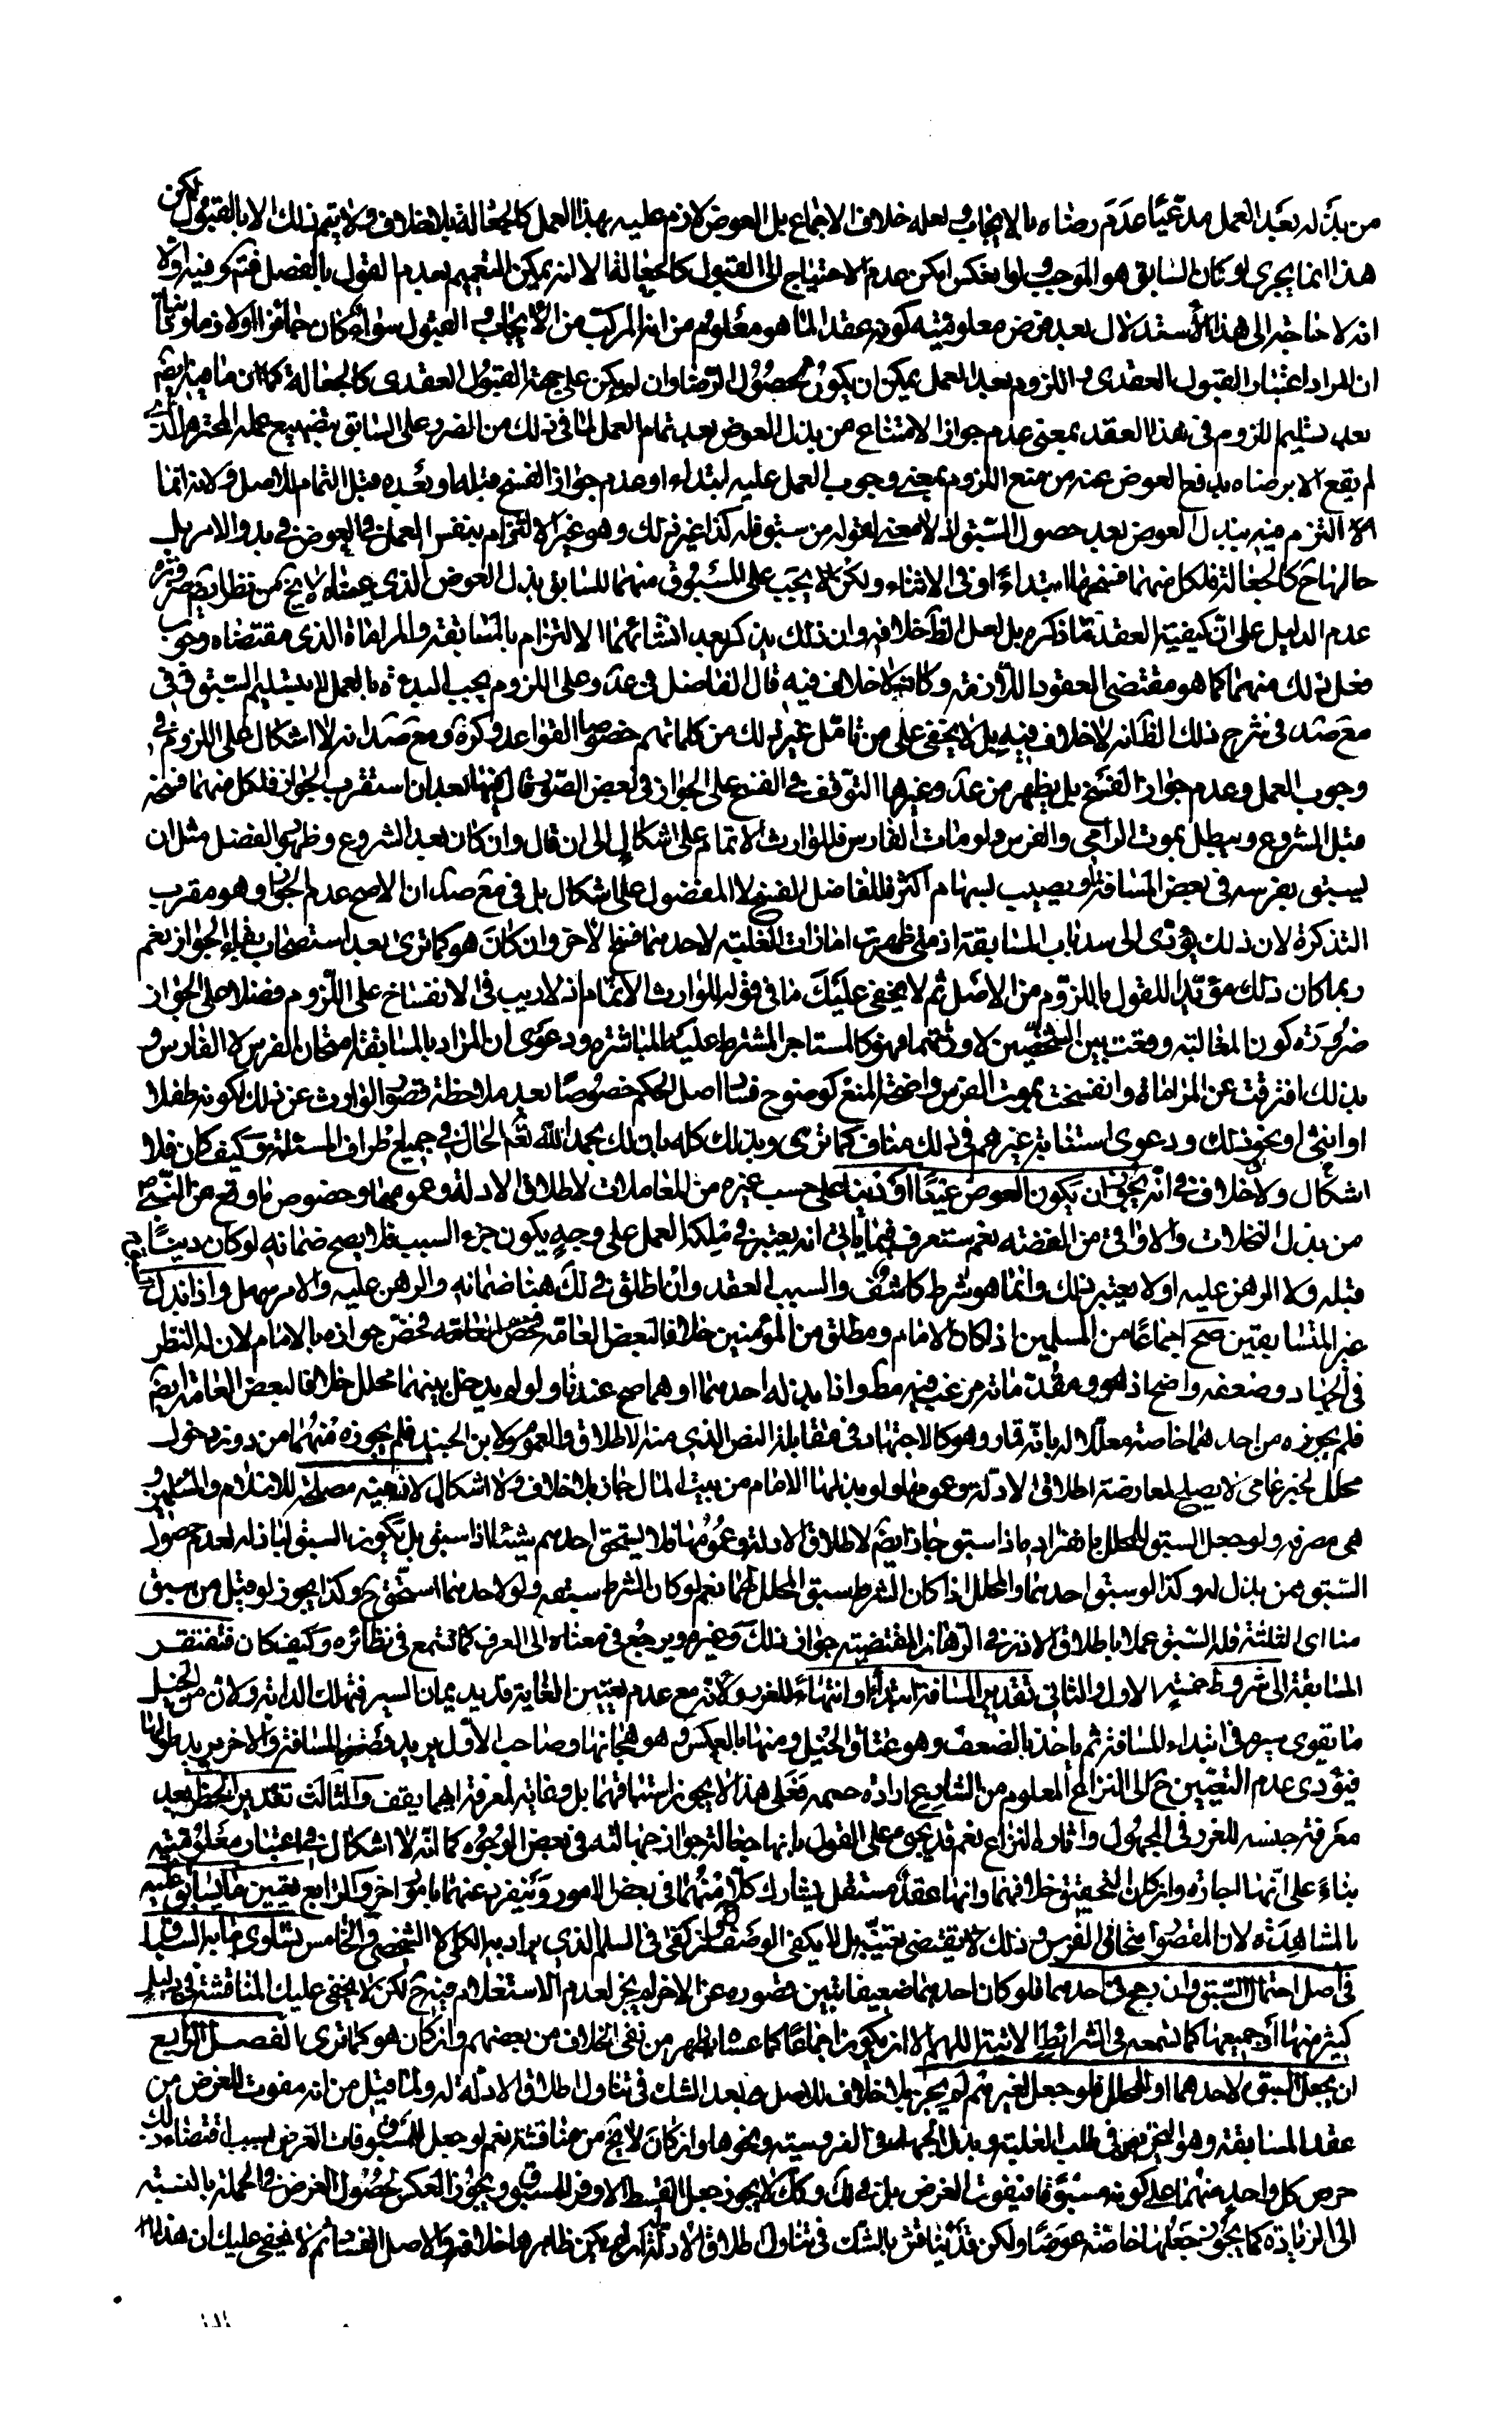 من بذله بعد العمل مدعيا عدم رضاه بالايجاب ولعله خلاف الاجماع بل العوض لازم عليه بهذا العمل كالجعالة بلا خلاف ولا يتم ذلك الا بالقبول لكن
هذا انما يجرى لو كان السابق هو الموجب ولو انعكس امكن عدم الاحتياج الى القبول كالجعالة الا انه يمكن التتميم بعدم القول بالفصل فتم وفيه اولا
انه لا حاجة الى هذا الاستدلال بعد فرض معلومية كونه عقدا لما هو معلوم من انه المركب من الايجاب و القبول سواء كان جائزا او لازما وثانيا
ان المراد اعتبار القبول العقدى و اللزوم بعد العمل يمكن ان يكون لحصول الرضا وان لم يكن على جهة القبول العقدى كالجعالة كما ان ما فيه ايضا
بعد تسليم اللزوم فى هذا العقد بمعنى عدم جواز الامتناع من بذل العوض بعد تمام العمل لما فى ذلك من الضرر على السابق بتضييع عمله المحترم الذى
لم يقع الا برضاه بدفع العوض عنه من منع اللزوم بمعنى وجوب العمل عليه ابتداء او عدم جواز الفسخ قبله او بعده قبل التمام للاصل ولانه انما
التزم فيه ببذل العوض بعد حصول السبق اذ لا معنى لقوله من سبق فله كذا غير ذلك وهو غير الالتزام بنفس العمل والعوض فى بدو الامر بل
حالها ح كالجعالة فلكل منهما فسخها ابتداء او فى الاثناء ولكن لا يجب على المسبوق منهما للسابق بذل العوض الذى عيناه لا يخ من نظر ايضا ضرورة
عدم الدليل على ان كيفية العقد ما ذكره بل لعل الظ خلافه وان ذلك يذكر بعد انشائهما الالتزام بالمسابقة والمراماة الذى مقتضاه وجوب
فعل ذلك منهما كما هو مقتضى العقود اللازمة وكانه لا خلاف فيه قال الفاضل فى عد وعلى اللزوم يجب البدئة بالعمل لا بتسليم السبق وفى
مع صد فى شرح ذلك الظ انه لا خلاف فيه بل لا يخفى على من تامل غير ذلك من كلماتهم خصوصا القواعد وكرة ومع صد انه لا اشكال على اللزوم فى
وجوب العمل وعدم جواز الفسخ بل يظهر من عد وغيرها التوقف فى الفسخ على الجواز فى بعض الصور قال فيها بعد ان استقرب الجواز فلكل منهما فسخه
قبل الشروع ويبطل بموت الرامى والفرس ولو مات الفارس فللوارث الاتمام على اشكال الى ان قال وان كان بعد الشروع وظهر الفضل مثل ان
يسبق بفرسه فى بعض المسافة او يصيب بسهام اكثر فللفاضل الفسخ لا المفضول على اشكال بل فى مع صد ان الاصح عدم الجواز وهو مقرب
التذكرة لان ذلك يؤدى الى سد باب المسابقة اذ متى ظهرت امارات الغلبة لاحدهما فسخ الاخر وان كان هو كما ترى بعد استصحاب بقاء الجواز نعم
ربما كان ذلك مؤيدا للقول باللزوم من الاصل ثم لا يخفى عليك ما فى قوله للوارث الاتمام اذ لا ريب فى الانفساخ على اللزوم فضلا على الجواز
ضرورة كون المغالبة وقعت بين الشخصين لا ورثتهما فهو كالمستاجر المشترط عليه المباشرة ودعوى ان المراد بالمسابقة امتحان الفرس لا الفارس و
بذلك افترقت عن المراماة وانفسخت بموت الفرس واضحة المنع كوضوح فساد اصل الحكم خصوصا بعد ملاحظة قصور الوارث عن ذلك لكونه طفلا
او انثى او نحو ذلك ودعوى استنابة غيرهم فى ذلك مناف كما ترى وبذلك كله بان لك بحمد الله تعم الحال فى جميع اطراف المسئلة وكيف كان فلا
اشكال ولا خلاف فى انه يجوز ان يكون العوض عينا او دينا على حسب غيره من المعاملات لاطلاق الادلة وعمومها وخصوص ما وقع من النبى ص
من بذل النخلات والاواقى من الفضة نعم ستعرف فيما ياتى انه يعتبر فى ملكه العمل على وجه يكون جزء السبب فلا يصح ضمانه لو كان دينا
قبله ولا الرهن عليه اولا يعتبر ذلك وانما هو شرط كاشف والسبب العقد وان اطلق فى لك هنا ضمانه والرهن عليه والامر سهل واذا بذل
غير المتسابقين صح اجماعا من المسلمين اذا كان الامام ومطلق من المؤمنين خلافا لبعض العامة فخص جوازه بالامام لان له النظر
فى الجهاد وضعفه واضح اذ هو ومقدماته مرغب فيه مط واذا بذله احدهما او هما صح عندنا ولو لم يدخل بينهما محلل خلافا لبعض العامة ايضا
فلم يجوزه من احدهما خاصة معللا له بانه قمار وهو كالاجتهاد فى مقابلة النص الذى منه الاطلاق والعموم ولابن الجنيد فلم يجوزه منهما من دون دخول
محلل لخبر عامى لا يصلح لمعارضة اطلاق الادلة وعمومها ولو بذلهما الامام من بيت المال جاز بلا خلاف ولا اشكال لان فيه مصلحة للاسلام والمسلمين و
هى مصرفه ولو جعل السبق للمحلل بانفراده ماذا سبق جاز ايضا لاطلاق الادلة وعمومها فلا يستحق احدهم شيئا اذا سبق بل يكون السبق لباذله لعدم حصول
السبق ممن بذل له وكذا لو سبق احدهما والمحلل اذا كان الشرط سبق المحلل لهما نعم لو كان الشرط سبقه ولو لاحدهما استحق ح وكذا يجوز لو قيل من سبق
منا اى الثلثة فله السبق عملا باطلاق الاذن فى الرهان المقتضية جواز ذلك وغيره ويرجع فى معناه الى العرف كما تسمع فى نظائره وكيف كان فتفتقر
المسابقة الى شروط خمسة الاول والثانى تقدير المسافة ابتداء وانتهاء للغرر ولانه مع عدم تعيين الغاية قد يديمان السير فتهلك الدابة ولان من الخيل
ما يقوى سيره فى ابتداء المسافة ثم ياخذ بالضعف وهو عتاق الخيل ومنها بالعكس وهو هجانها وصاحب الاول يريد قصر المسافة والاخر يريد طولها
فيؤدى عدم التعيين ح الى النزاع المعلوم من الشارع ارادة حسمه فعلى هذا لا يجوز استباقهما بل وغايه لمعرفة ايهما يقف والثالث تقدير الخطر بعد
معرفة جنسه للغرر فى المجهول واثارة النزاع نعم قد يجئ على القول بانها جعالة جواز جهالته فى بعض الوجوه كما انه لا اشكال فى اعتبار معلوميته
بناء على انها اجارة وان كان التحقيق خلافهما وانها عقد مستقل يشارك كلا منهما فى بعض الامور وينفرد عنهما بامور اخر والرابع تعيين ما يسابق عليه
بالمشاهدة لان المقصود امتحان الفرس وذلك لا يقتضى تعيينه بل لا يكفى الوصف وان كفى فى السلم الذى يراد به الكلى لا الشخصى والخامس تساوى ما به السباق
فى اصل احتمال السبق وان رجح فى احدهما فلو كان احدهما ضعيفا تبين قصوره عن الاخر لم يجز لعدم الاستعلام فيه ح لكن لا يخفى عليك المناقشة فى دليل
كثير منها او جميعها كما تسمعه فى الشرائط الاتية اللهم الا ان يكون اجماعا كما عساه يظهر من نفى الخلاف من بعضهم وان كان هو كما ترى بالفصل الرابع
ان يجعل السبق لاحدهما او للمحلل فلو جعل لغيرهم لم يجز بلا خلاف للاصل بعد الشك فى تناول اطلاق الادلة له ولما قيل من انه مفوت للغرض من
عقد المسابقة وهو التحريض فى طلب الغلبة وبذل الجهد فى الفروسية ونحوها وان كان لا يخ من مناقشة نعم لو جعل للمسبوق فات الغرض بسبب اقتضاء ذلك
حرص كل واحد منهما على كونه مسبوقا فيفوت الغرض بل فى لك وكك لا يجوز جعل القسط الاوفر للمسبوق ويجوز العكس لحصول الغرض فى الجملة بالنسبة
الى الزيادة كما يجوز جعلها خاصة عوضا ولكن قد يناقش بالشك فى تناول اطلاق الادلة ان لم يكن ظاهرها خلافه والاصل الفساد ثم لا يخفى عليك ان هذا